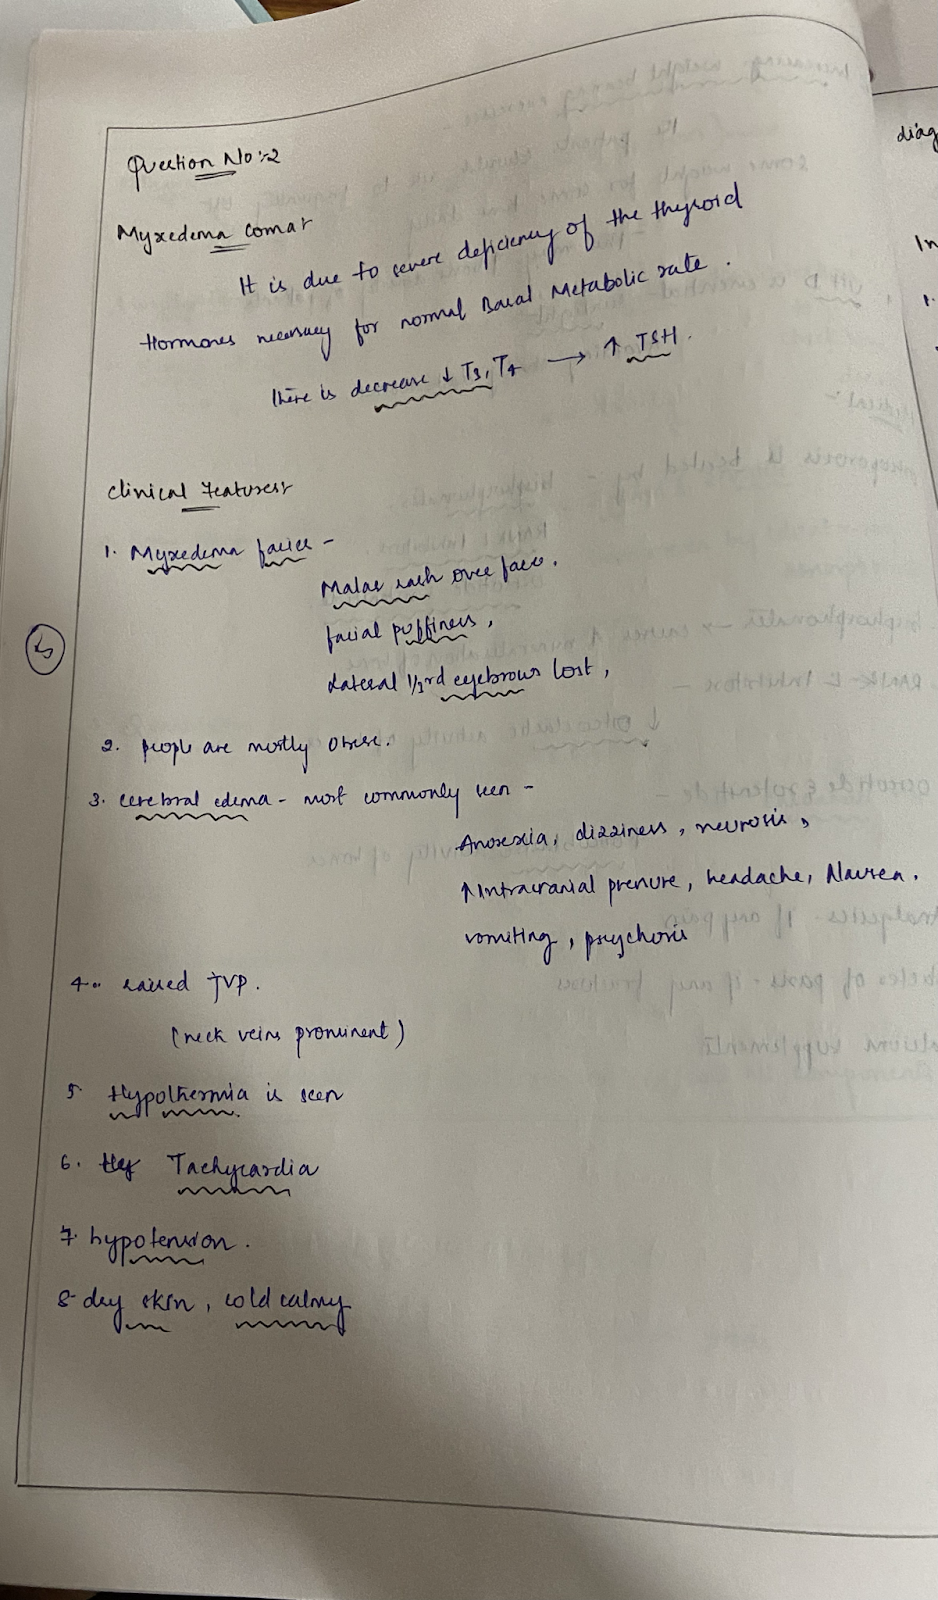 Question No :- 2
Myxedema coma:
It is due to severe deficiency of the thyroid
Hormones necessary for normal Basal Metabolic rate.
There is decrease ↓ T3, T4 → ↑ TSH.
Clinical Features:
1. Myxedema facies -
Malar rash over face,
facial puffiness,
Lateral 1/3rd eyebrows lost,
2. people are mostly obese.
3. cerebral edema - most commonly seen -
Anorexia, dizziness, neurosis,
↑ Intracranial pressure, headache, Nausea,
vomiting, psychosis
4. raised JVP.
(neck veins prominent)
5. Hypothermia is seen
6. Tachycardia
7. hypotension.
8- dry skin, cold calmy
diag
In
1.